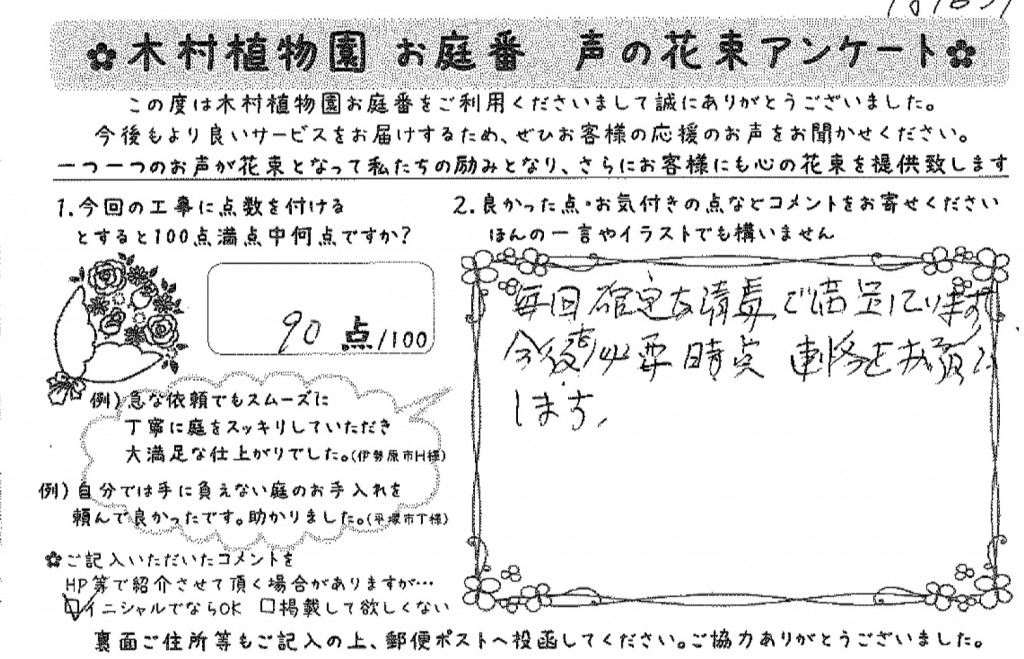 ✿木村植物園 お庭番 声の花束アンケート✿
この度は木村植物園お庭番をご利用くださいまして誠にありがとうございました。
今後もより良いサービスをお届けするため、ぜひお客様の応援のお声をお聞かせください。
一つ一つのお声が花束となって私たちの励みとなり、さらにお客様にも心の花束を提供致します
1.今回の工事に点数を付ける
とすると100点満点中何点ですか?
90 点/100
例)急な依頼でもスムーズに
丁寧に庭をスッキリしていただき
大満足な仕上がりでした。(伊勢原市H様)
例)自分では手に負えない庭のお手入れを
頼んで良かったです。助かりました。(平塚市T様)
✿ご記入いただいたコメントを
HP等で紹介させて頂く場合がありますが…
☑イニシャルでならOK □掲載して欲しくない
2.良かった点・お気付きの点などコメントをお寄せください
ほんの一言やイラストでも構いません
毎回 確定な清 で満足しています
今後も必要時点 連絡をお願い
します。
裏面ご住所等もご記入の上、郵便ポストへ投函してください。ご協力ありがとうございました。